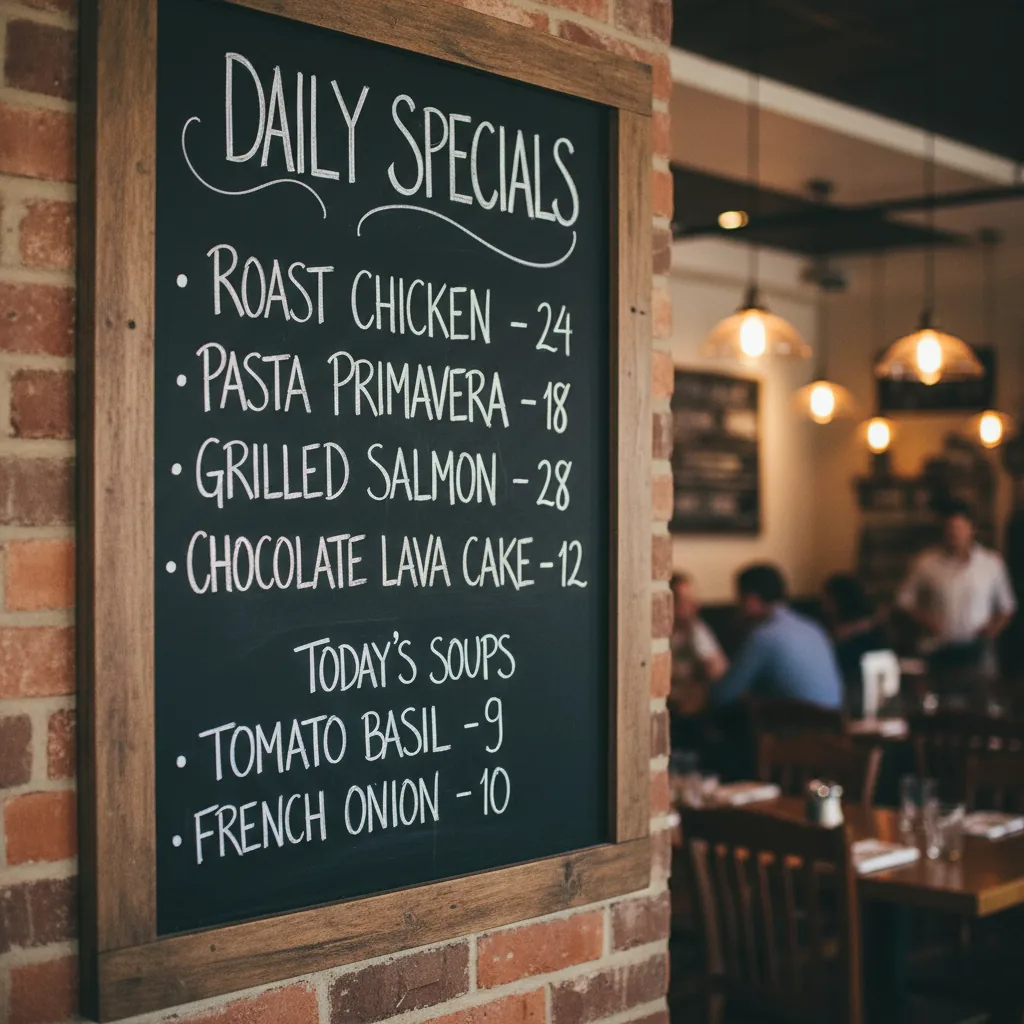 DAILY SPECIALS
• ROAST CHICKEN – 24
• PASTA PRIMAVERA – 18
• GRILLED SALMON – 28
• CHOCOLATE LAVA CAKE – 12
TODAY'S SOUPS
• TOMATO BASIL – 9
• FRENCH ONION – 10